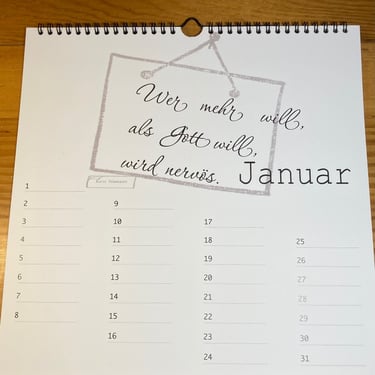 Wer mehr will,
als Gott will,
wird nervös.
Januar
1
2
3
4
5
6
7
8
9
10
11
12
13
14
15
16
17
18
19
20
21
22
23
24
25
26
27
28
29
30
31